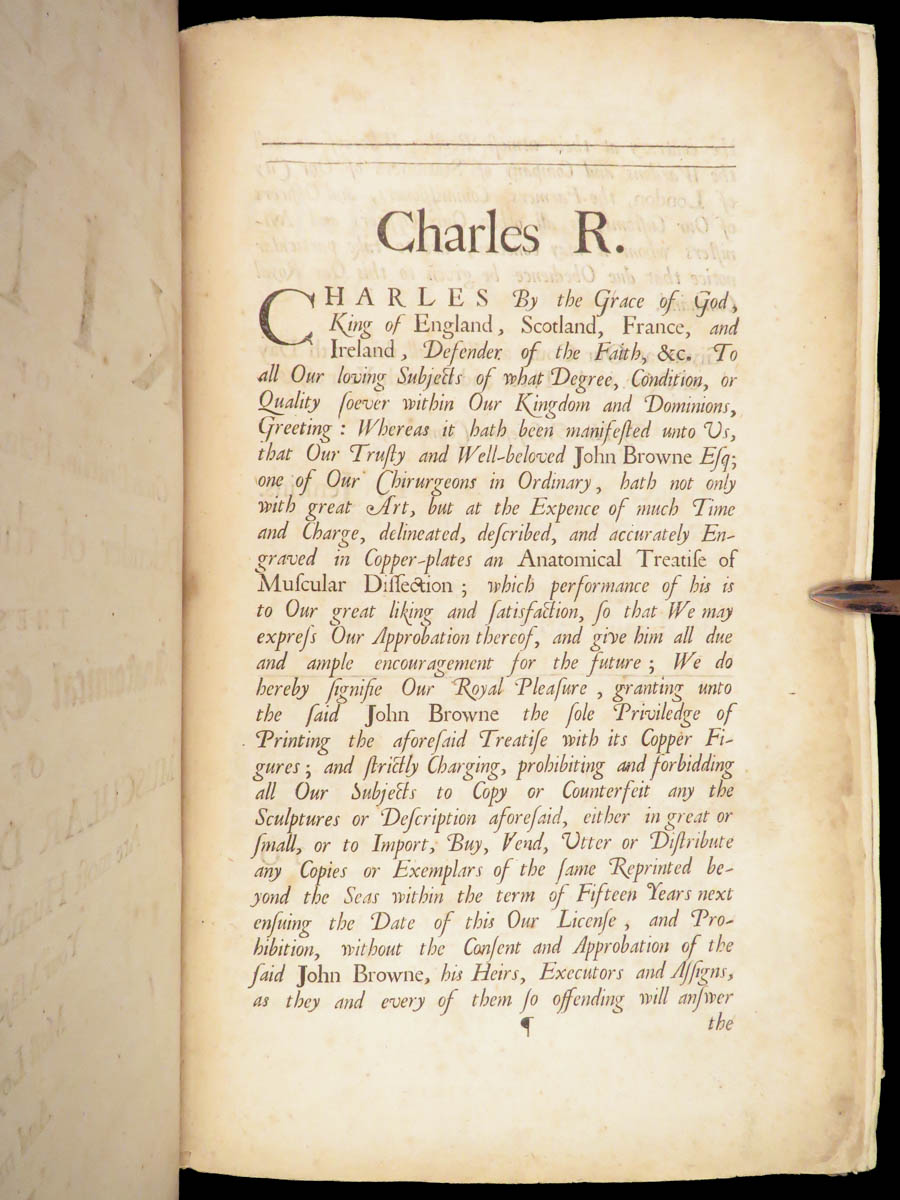 Charles R.
CHARLES By the Grace of God,
King of England, Scotland, France, and
Ireland, Defender of the Faith, &c. To
all Our loving Subjects of what Degree, Condition, or
Quality ſoever within Our Kingdom and Dominions,
Greeting : Whereas it hath been manifeſted unto Us,
that Our Truſty and Well-beloved John Browne Eſq;
one of Our Chirurgeons in Ordinary, hath not only
with great Art, but at the Expence of much Time
and Charge, delineated, deſcribed, and accurately En-
graved in Copper-plates an Anatomical Treatiſe of
Muſcular Diſſection ; which performance of his is
to Our great liking and ſatisfaction, ſo that We may
expreſs Our Approbation thereof, and give him all due
and ample encouragement for the future ; We do
hereby ſignifie Our Royal Pleaſure , granting unto
the ſaid John Browne the ſole Priviledge of
Printing the aforeſaid Treatiſe with its Copper Fi-
gures ; and ſtrictly Charging, prohibiting and forbidding
all Our Subjects to Copy or Counterfeit any the
Sculptures or Deſcription aforeſaid, either in great or
ſmall, or to Import, Buy, Vend, Utter or Diſtribute
any Copies or Exemplars of the ſame Reprinted be-
yond the Seas within the term of Fifteen Years next
enſuing the Date of this Our Licenſe , and Pro-
hibition, without the Conſent and Approbation of the
ſaid John Browne, his Heirs, Executors and Aſſigns,
as they and every of them ſo offending will anſwer
¶ the